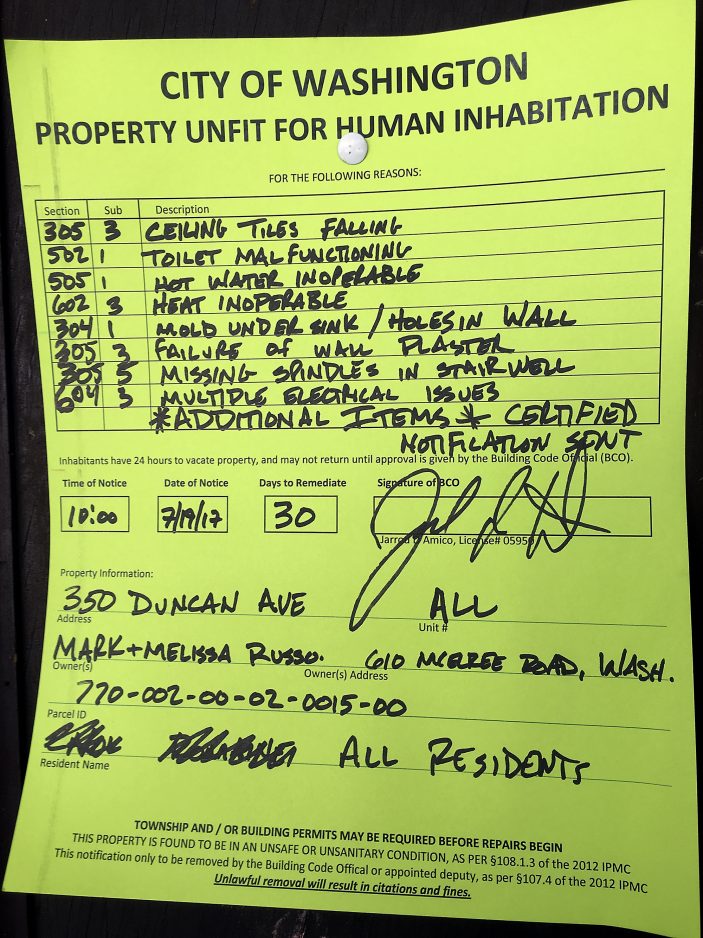 CITY OF WASHINGTON
PROPERTY UNFIT FOR HUMAN INHABITATION
FOR THE FOLLOWING REASONS:
Section Sub Description
305 3 CEILING TILES FALLING
502 1 TOILET MALFUNCTIONING
505 1 HOT WATER INOPERABLE
602 3 HEAT INOPERABLE
304 1 MOLD UNDER SINK / HOLES IN WALL
305 3 FAILURE OF WALL PLASTER
305 5 MISSING SPINDLES IN STAIRWELL
604 3 MULTIPLE ELECTRICAL ISSUES
*ADDITIONAL ITEMS* CERTIFIED
NOTIFILATION SENT
Inhabitants have 24 hours to vacate property, and may not return until approval is given by the Building Code Official (BCO).
Time of Notice Date of Notice Days to Remediate Signature of BCO
10:00 7/19/17 30
Amico, License# 05950
Property Information:
350 DUNCAN AVE ALL
Address Unit #
MARK + MELISSA RUSSO. 610 MCELREE ROAD, WASH.
Owner(s) Owner(s) Address
770-002-00-02-0015-00
Parcel ID
ALL RESIDENTS
Resident Name
TOWNSHIP AND / OR BUILDING PERMITS MAY BE REQUIRED BEFORE REPAIRS BEGIN
THIS PROPERTY IS FOUND TO BE IN AN UNSAFE OR UNSANITARY CONDITION, AS PER §108.1.3 of the 2012 IPMC
This notification only to be removed by the Building Code Offical or appointed deputy, as per §107.4 of the 2012 IPMC
Unlawful removal will result in citations and fines.